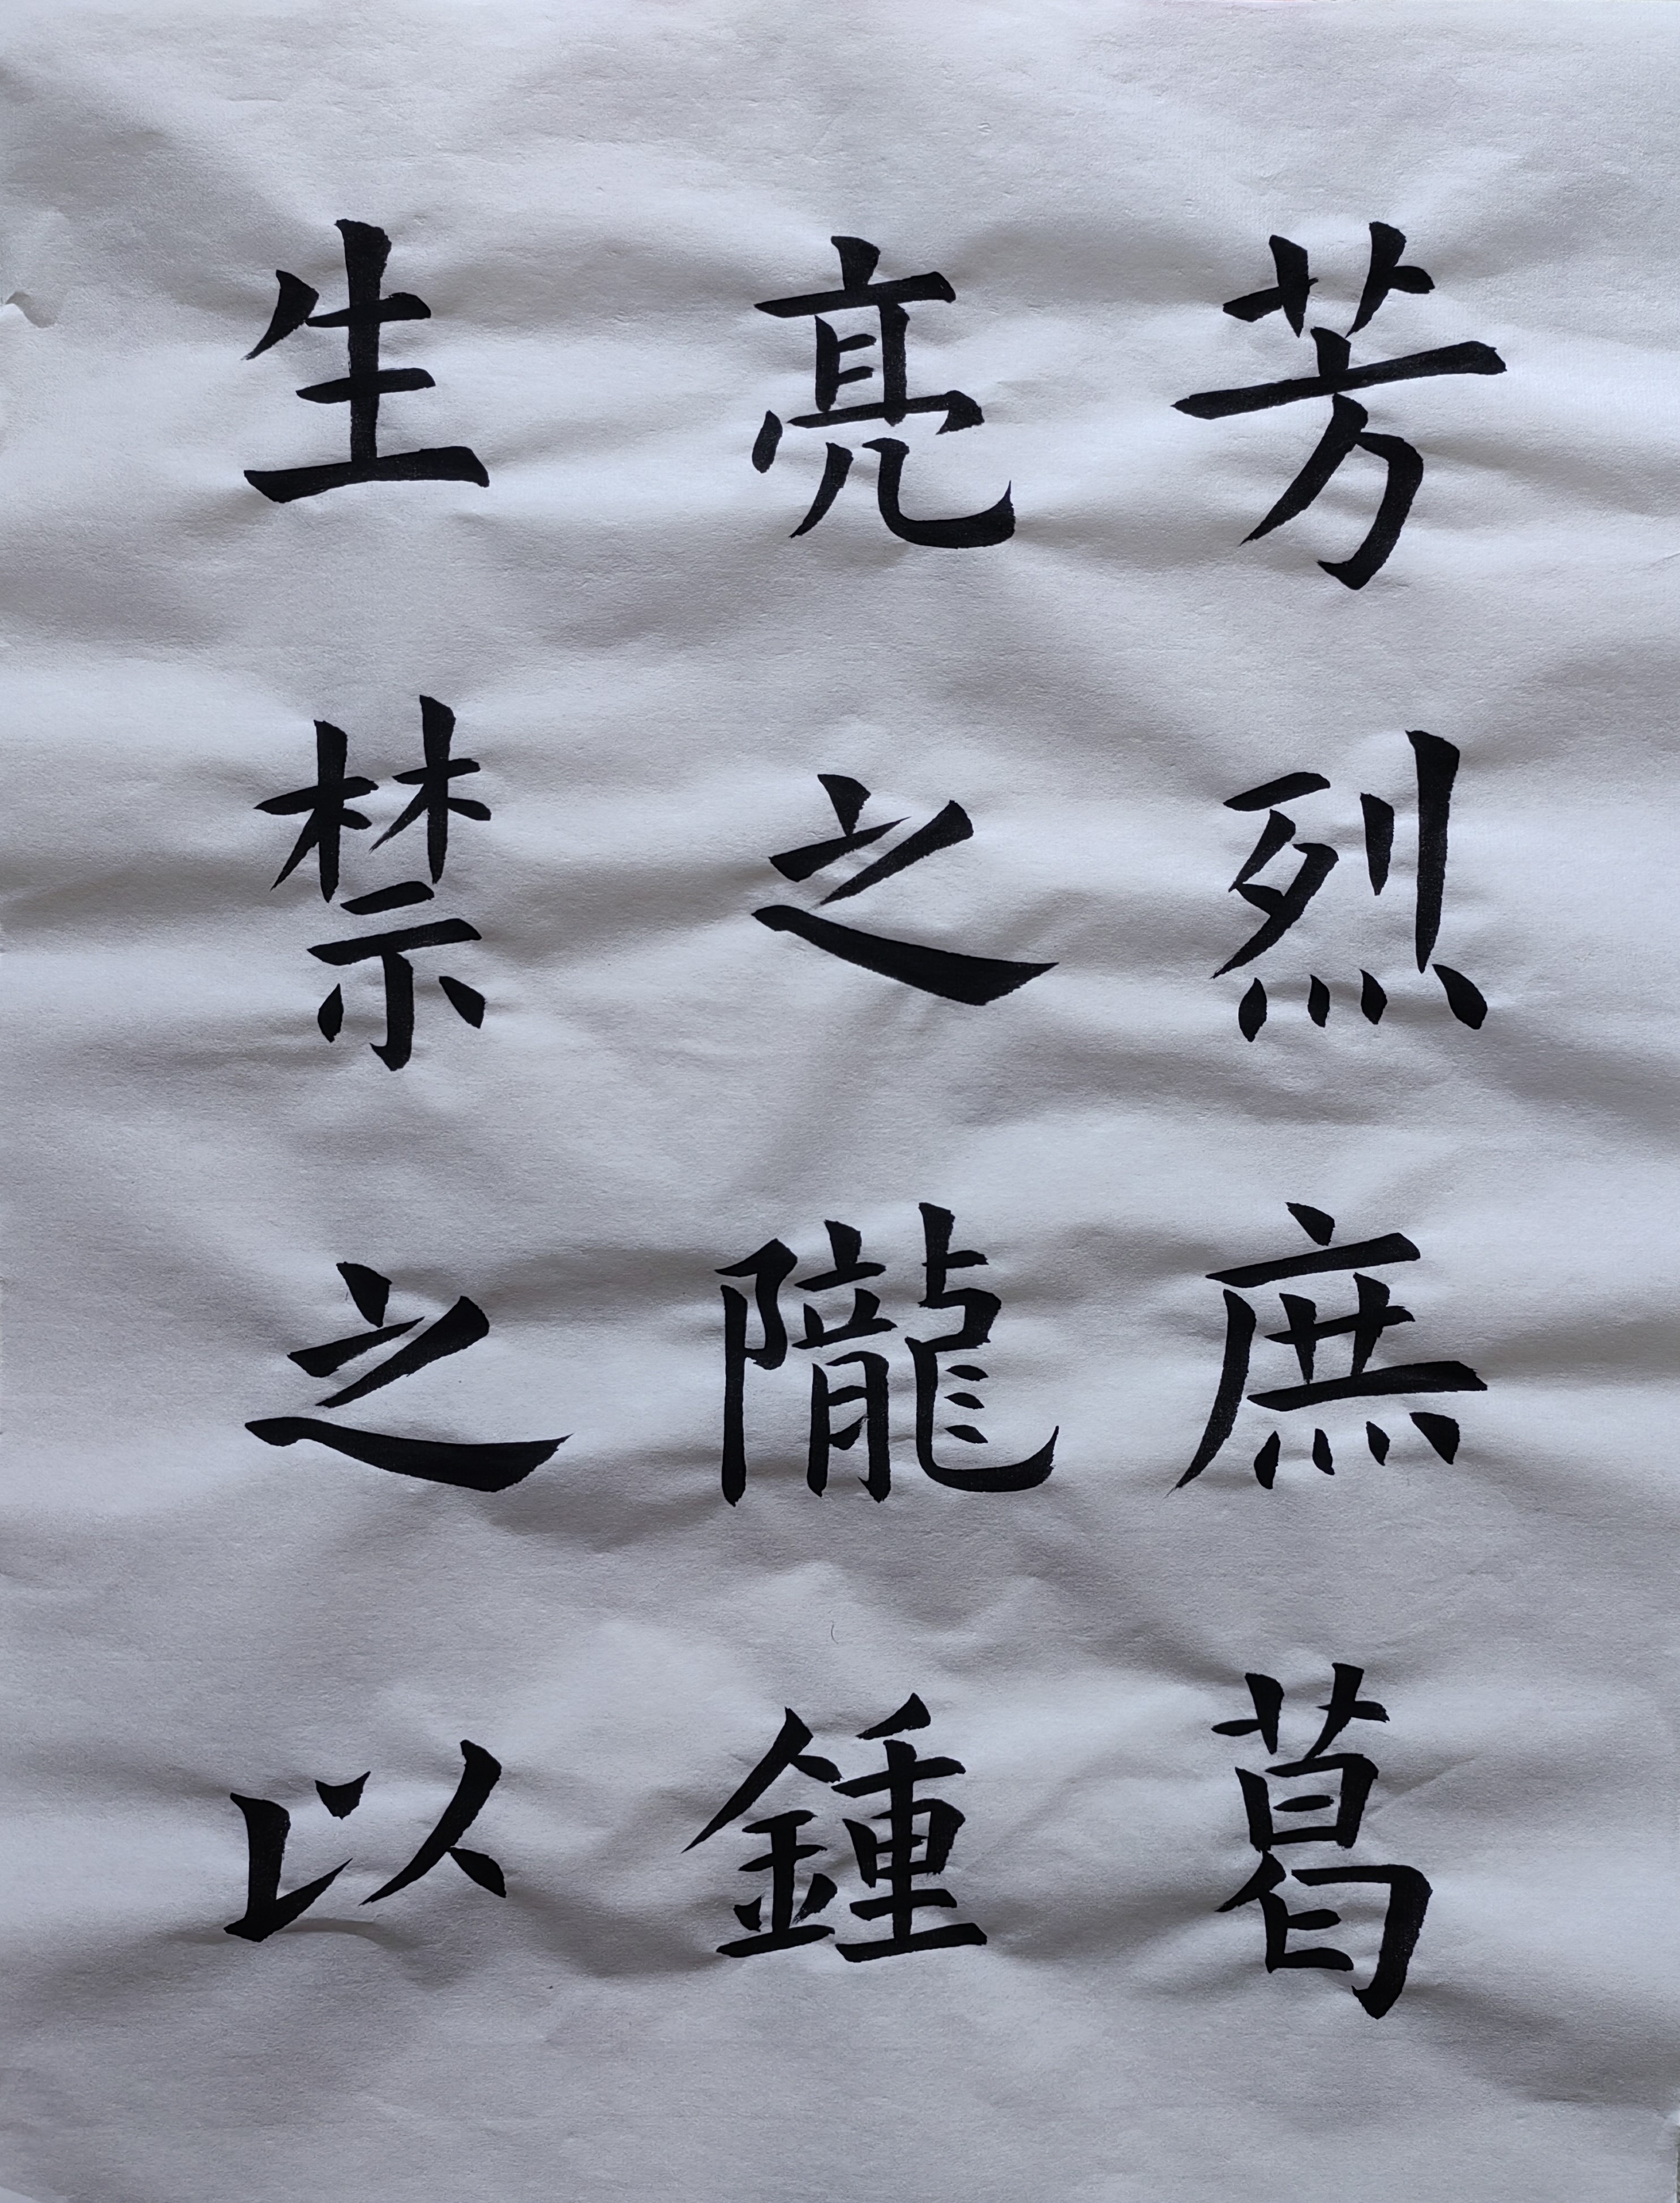 芳烈庶葛
亮之隴鍾
生禁之以